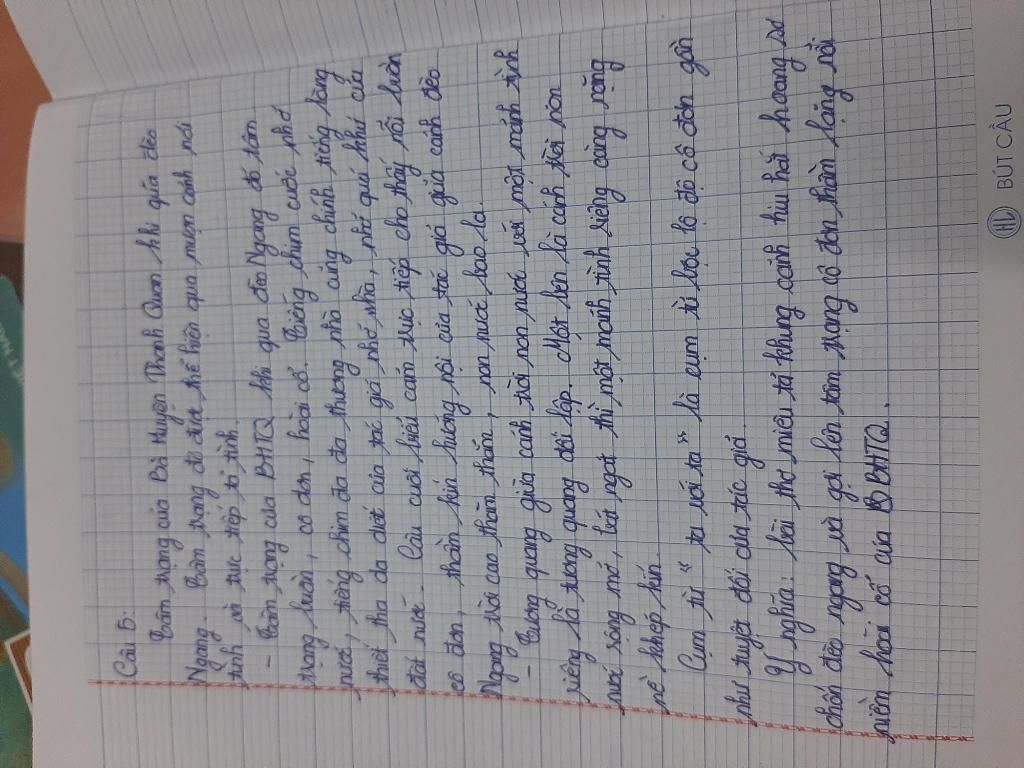 Câu 5:
Tâm trạng của Bà Huyện Thanh Quan khi qua đèo
Ngang. Tâm trạng đó được thể hiện qua mượn cảnh nói
tình và trực tiếp tả tình.
- Tâm trạng của BHTQ khi qua đèo Ngang đó tâm
trạng buồn, cô đơn, hoài cổ. Tiếng chim cuốc nhớ
nước, tiếng chim đa đa thương nhà cũng chính tiếng lòng
thiết tha da diết của tác giả nhớ nhà, nhớ quá khứ của
đất nước. Câu cuối biểu cảm trực tiếp cho thấy nỗi buồn
cô đơn, thầm kín hướng nội của tác giả giữa cảnh đèo
Ngang trời cao thăm thẳm, non nước bao la.
- Tương quang giữa cảnh trời non nước với một mảnh tình
riêng là tương quang đối lập. Một bên là cảnh trời non
nước rộng mở, bát ngát thì một mảnh tình riêng càng nặng
nề khép kín.
Cụm từ " ta với ta " là cụm từ bọc lộ độ cô đơn gần
như tuyệt đối của tác giả.
Ý nghĩa: bài thơ miêu tả khung cảnh hiu hắt hoang sơ
chốn đèo ngang và gợi lên tâm trạng cô đơn thầm lặng nỗi
niềm hoài cổ của BHTQ.
BÚT CẦU